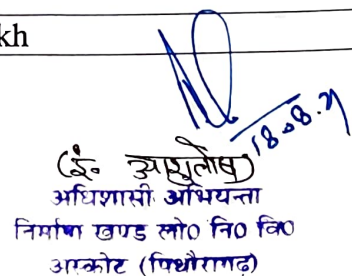 kh
18.08.21
(ई० आशुतोष)
अधिशासी अभियन्ता
निर्माण खण्ड लो० नि० वि०
अस्कोट (पिथौरागढ़)